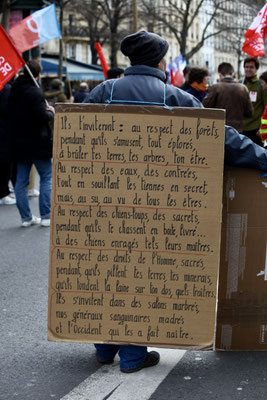 Ils t'invitent : au respect des forêts,
pendant qu'ils s'amusent, tout éplorés,
à brûler tes terres, tes arbres, ton être.
Au respect des eaux, des contrées,
tout en souillant les tiennes en secret,
mais au su, au vu de tous les êtres.
Au respect des chiens-loups, des sacrets,
pendant qu'ils te chassent en toile, livré...
à des chiens enragés tels leurs maîtres.
Au respect des droits de l'Homme, sacrés,
pendant, qu'ils pillent tes terres, tes minerais,
qu'ils tondent la laine sur ton dos, quels traîtres,
Ils s'invitent dans des salons marbrés,
nos généraux sanguinaires madrés
et l'Occident qui les a fait naître.